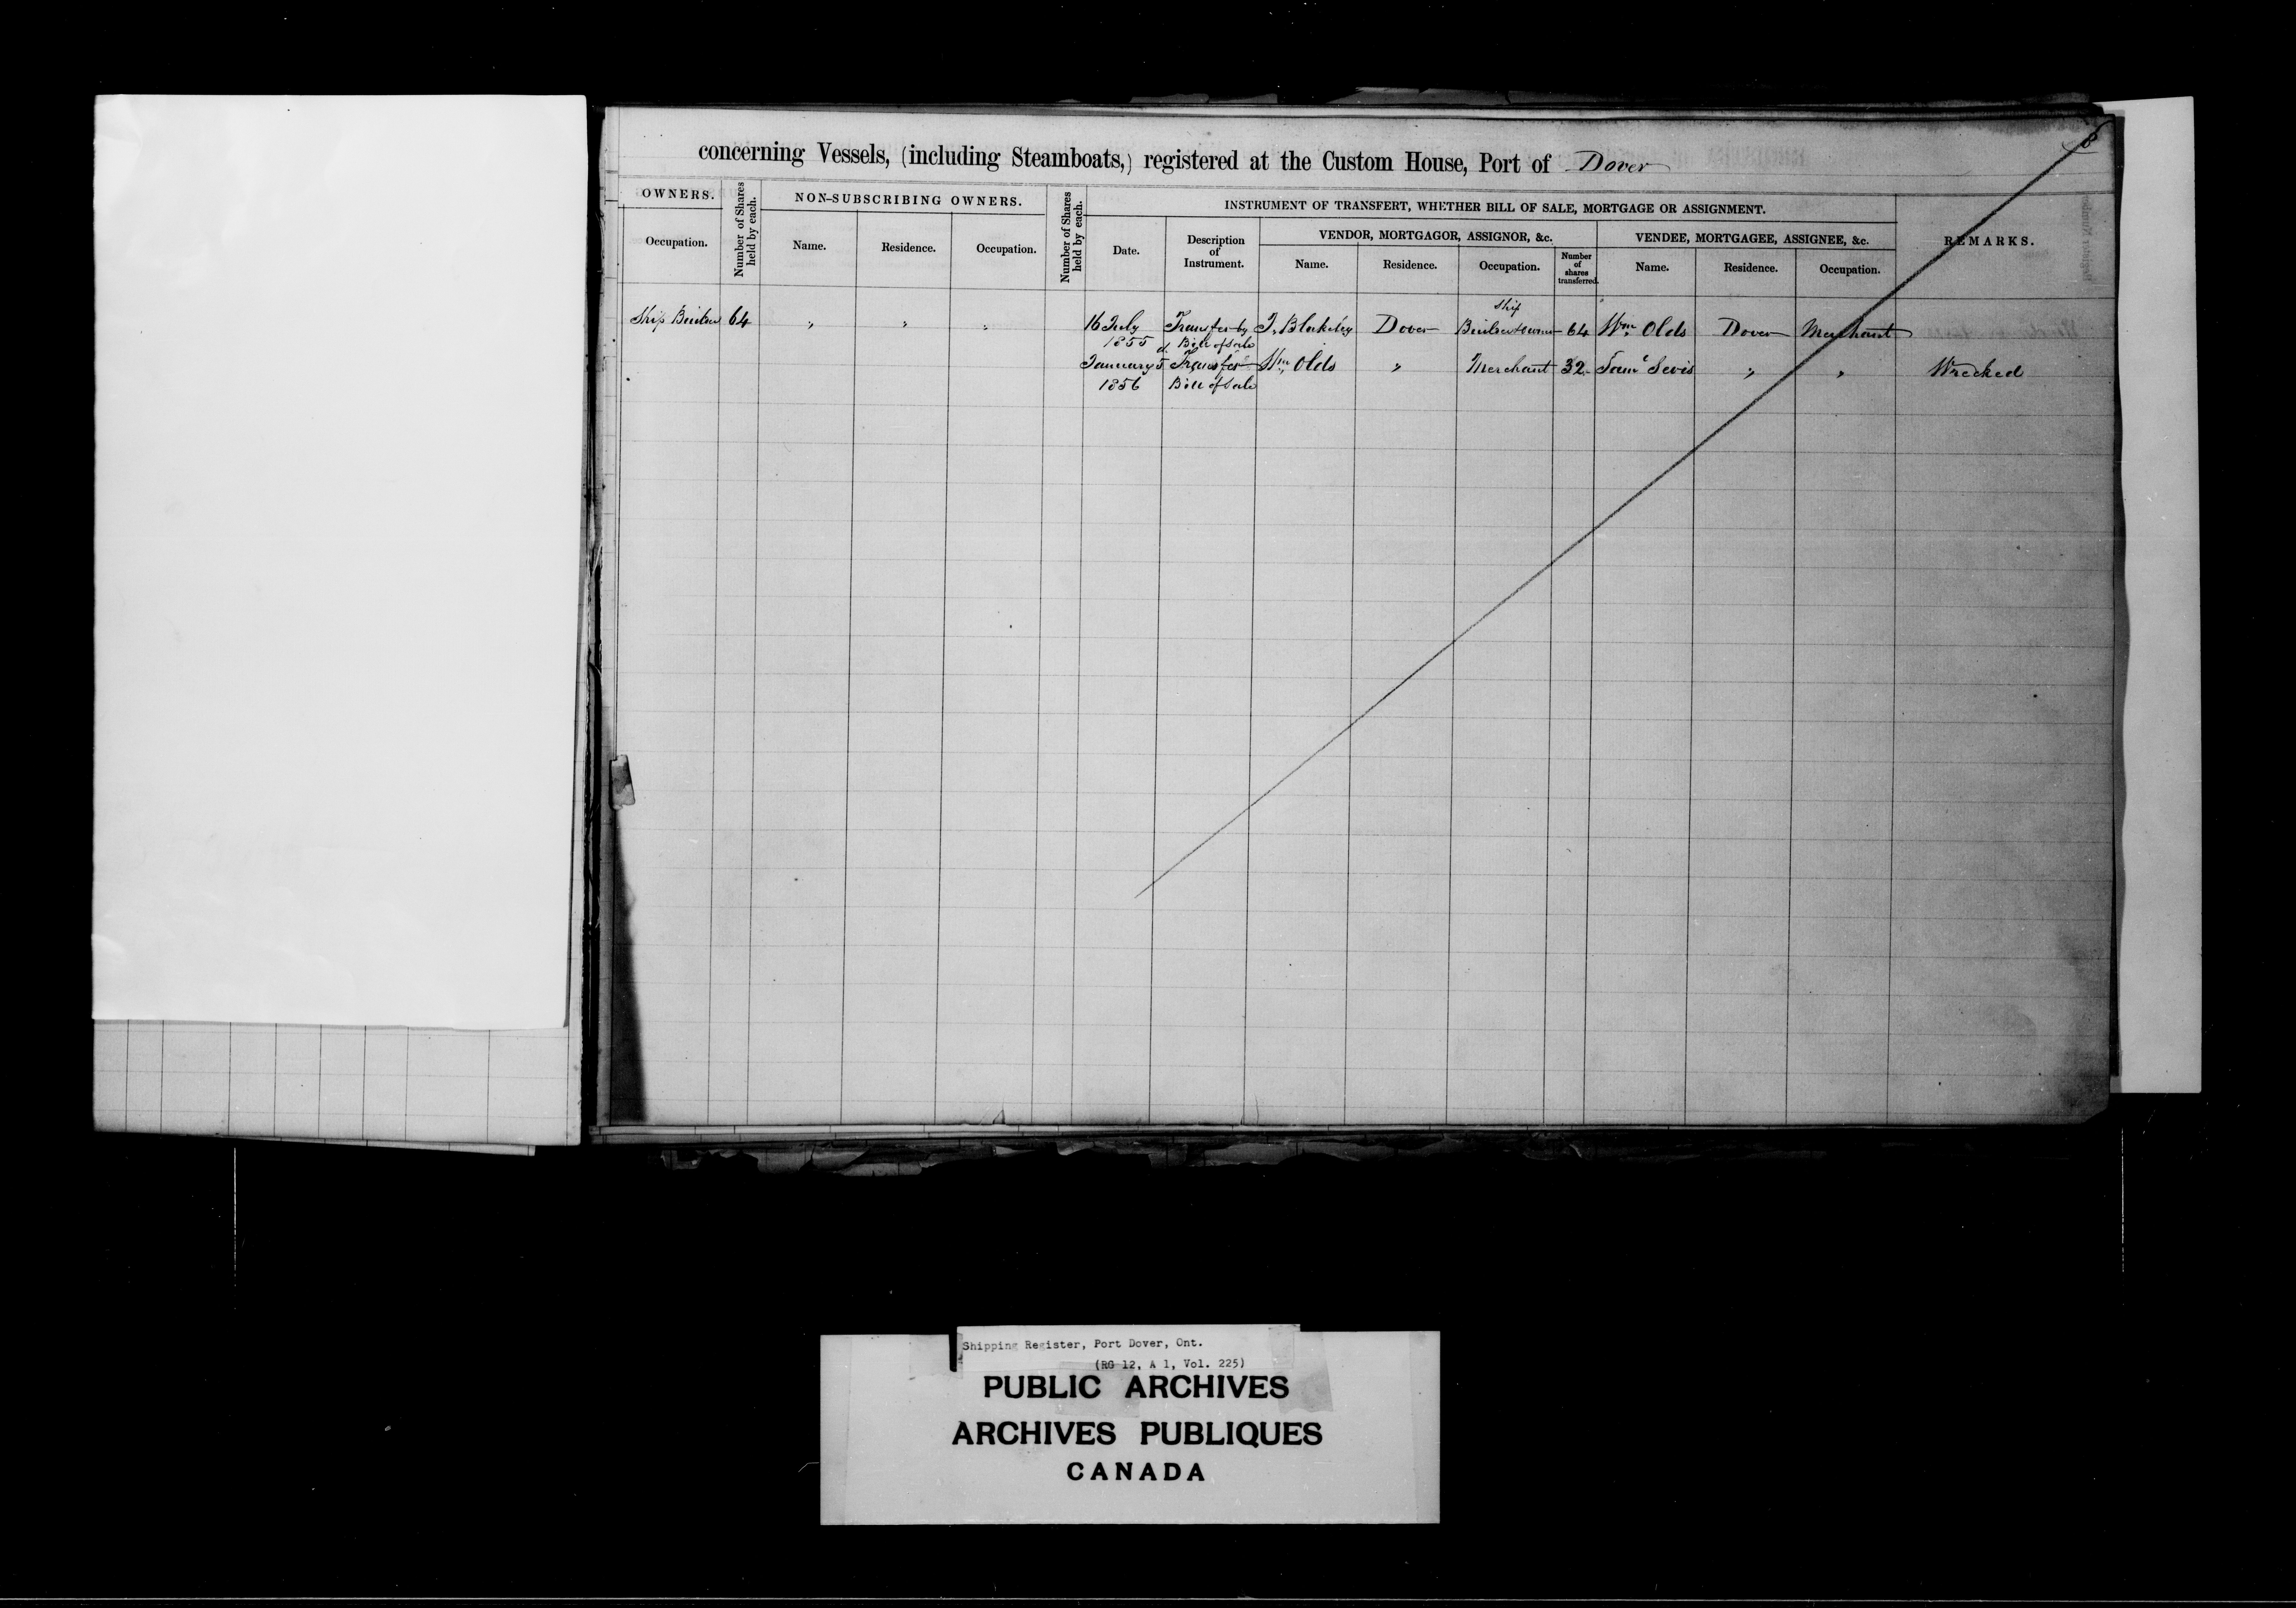 concerning Vessels, (including Steamboats,) registered at the Custom House, Port of Dover
OWNERS.
Number of Shares held by each.
NON-SUBSCRIBING OWNERS.
Number of Shares held by each.
INSTRUMENT OF TRANSFERT, WHETHER BILL OF SALE, MORTGAGE OR ASSIGNMENT.
REMARKS.
Occupation.
Name.
Residence.
Occupation.
Date.
Description of Instrument.
VENDOR, MORTGAGOR, ASSIGNOR, &c.
VENDEE, MORTGAGEE, ASSIGNEE, &c.
Name.
Residence.
Occupation.
Number of shares transferred.
Name.
Residence.
Occupation.
Ship Builder 64 " " " 16 July Transfer by T. Blakeley Dover Ship 64 Wm Olds Dover Merchant
1855 Bill of Sale
January 5 Transfer Wm Olds " Merchant 32 Saml " " Wrecked
1856 Bill of Sale
Shipping Register, Port Dover, Ont.
(RG 12, A 1, Vol. 225)
PUBLIC ARCHIVES
ARCHIVES PUBLIQUES
CANADA